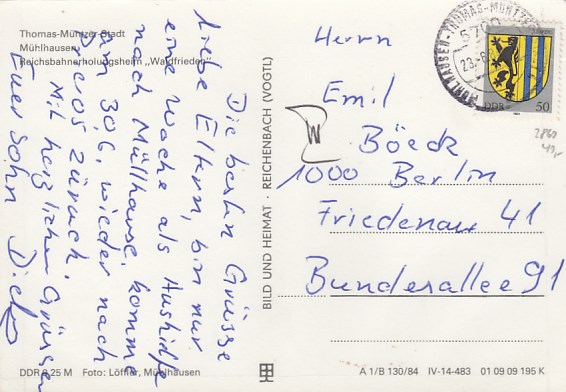 Thomas-Müntzer-Stadt
Mühlhausen
Reichsbahnerholungsheim „Waldfrieden"
Die besten Grüsse
Liebe Eltern, bin nur
eine Woche als Aushilfe
nach Müllhause, komme
am 30.6. wieder nach
zurück.
Mit herzlichen Grüssen
Euer Sohn
DDR 0,25 M Foto: Löffler, Mühlhausen
BILD UND HEIMAT · REICHENBACH (VOGTL)
W
Herrn
Emil
Böeck
1000 Berlin
Friedenau 41
Bundesallee 91
MÜHLHAUSEN · THOMAS-MÜNTZER-
5700
DDR 50
A 1/B 130/84 IV-14-483 01 09 09 195 K